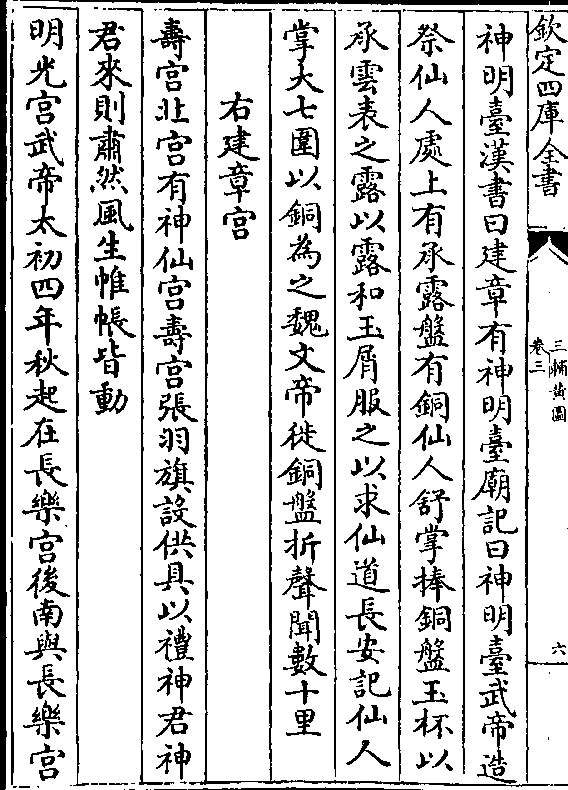 欽定四庫全書
三輔黄圖
卷三
六
神明臺漢書曰建章有神明臺廟記曰神明臺武帝造
祭仙人處上有承露盤有銅仙人舒掌捧銅盤玉杯以
承雲表之露以露和玉屑服之以求仙道長安記仙人
掌大七圍以銅為之魏文帝徙銅盤折聲聞數十里
右建章宫
壽宫北宫有神仙宫壽宫張羽旗設供具以禮神君神
君來則肅然風生帷帳皆動
明光宫武帝太初四年秋起在長樂宫後南與長樂宫